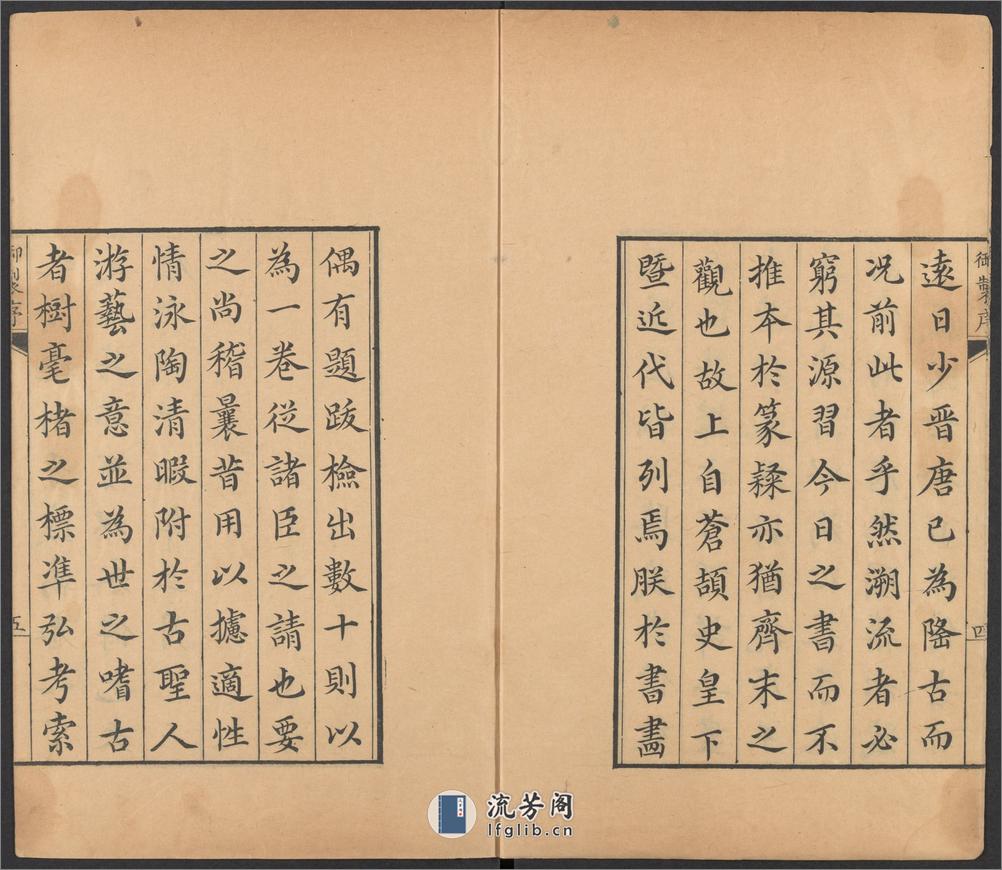 御製序
四
遠日少晋唐已為隆古而
况前此者乎然溯流者必
窮其源習今日之書而不
推本於篆隸亦猶齊末之
觀也故上自蒼頡史皇下
暨近代皆列焉朕於書畫
偶有題跋檢出數十則以
為一卷從諸臣之請也要
之尚稽曩昔用以攄適性
情泳陶清暇附於古聖人
游藝之意並為世之嗜古
者樹毫楮之標準弘考索
御製序
五
流芳阁
lfglib.cn